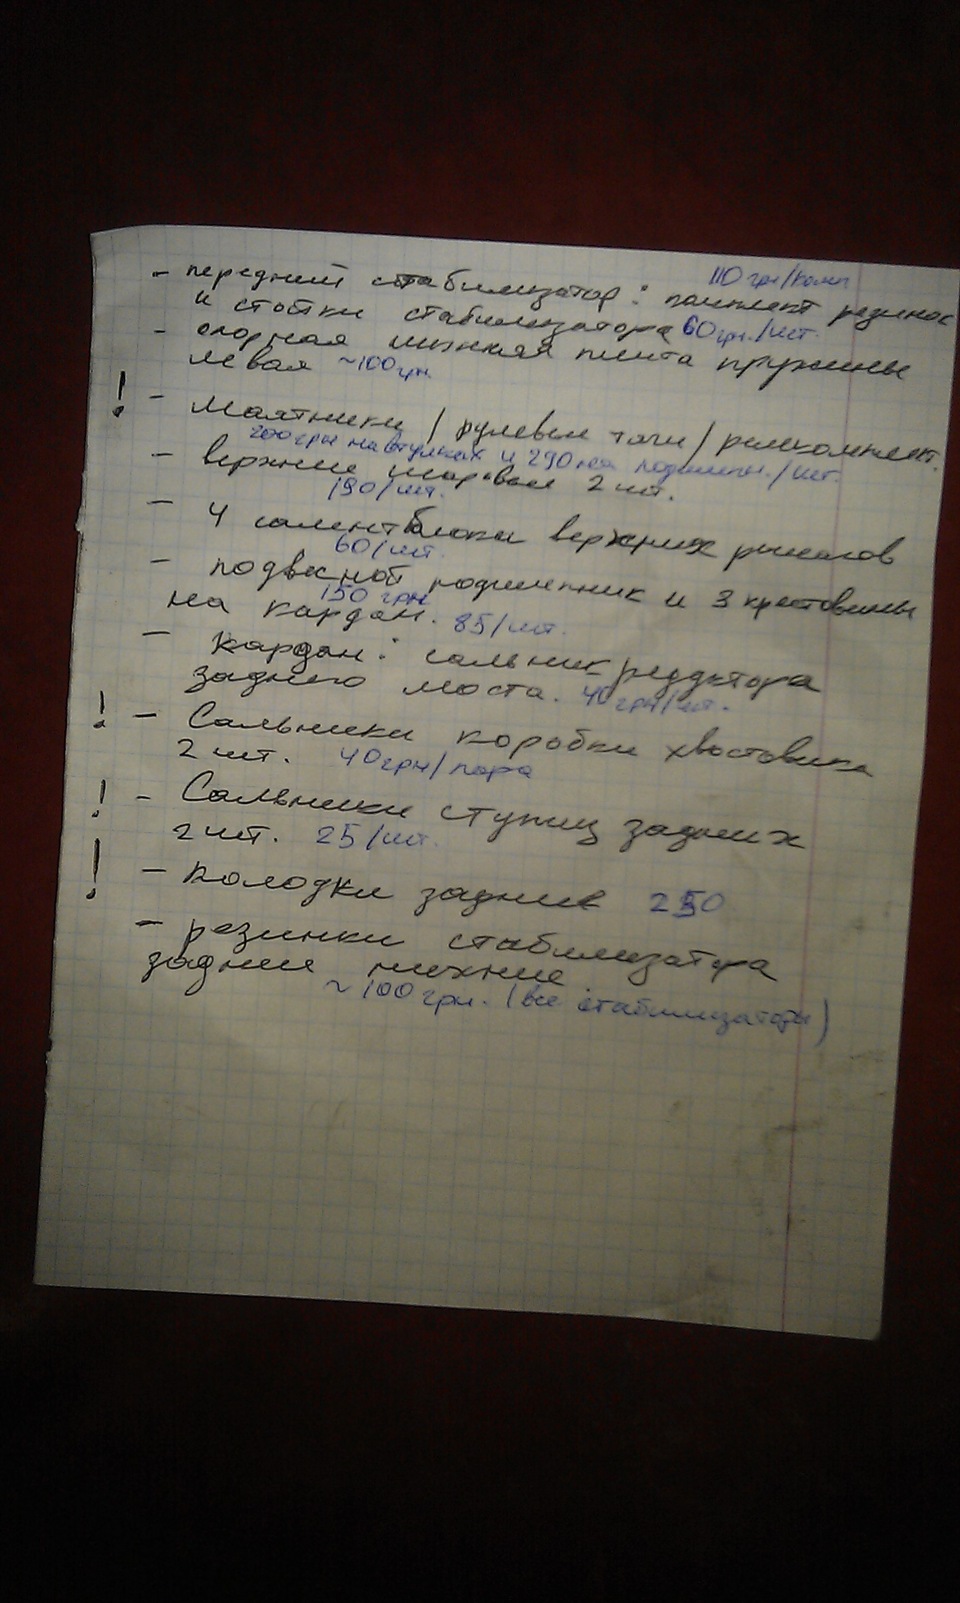 110 грн/комп
- передний стабилизатор: комплект резинок
и стойки стабилизатора 60 грн./шт.
- опорная нижняя плита пружины
левая ~100 грн
! - Маятники / рулевые тяги / ремкомплект.
200 грн на втулках и 290 на подшипн. / шт.
- верхние шаровые 2 шт.
190/шт.
- 4 салентблоки верхних рычагов
60/шт.
- подвесной подшипник и 3 крестовины
150 грн
на кардан. 85/шт.
- Кардан: сальник редуктора
заднего моста. 40 грн/шт.
! - Сальники коробки хвостовика
2 шт. 40 грн/пара
! - Сальники ступиц задних
2 шт. 25/шт.
! - Колодки задние 250
- резинки стабилизатора
задние нижние
~100 грн. (все стабилизаторы)